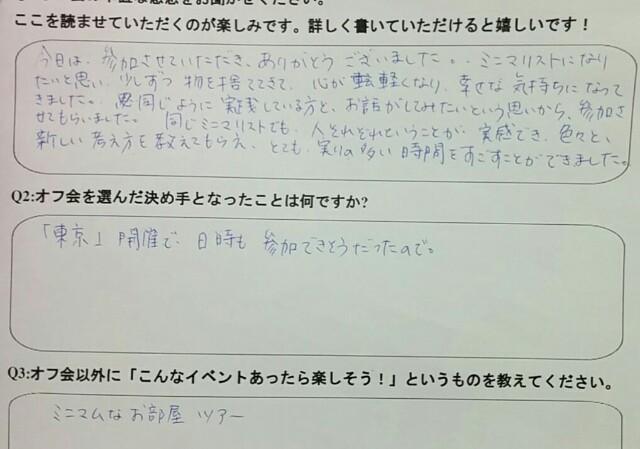 ここを読ませていただくのが楽しみです。詳しく書いていただけると嬉しいです！
今日は、参加させていただき、ありがとうございました。ミニマリストになり
たいと思い、少しずつ物を捨ててきて、心が軽くなり、幸せな気持ちになって
きました。同じように実践している方と、お話がしてみたいという思いから、参加さ
せてもらいました。同じミニマリストでも、人それぞれということが実感でき、色々と、
新しい考え方を教えてもらえ、とても実りの多い時間をすごすことができました。
Q2:オフ会を選んだ決め手となったことは何ですか?
「東京」開催で、日時も参加できそうだったので。
Q3:オフ会以外に「こんなイベントあったら楽しそう！」というものを教えてください。
ミニマムなお部屋ツアー